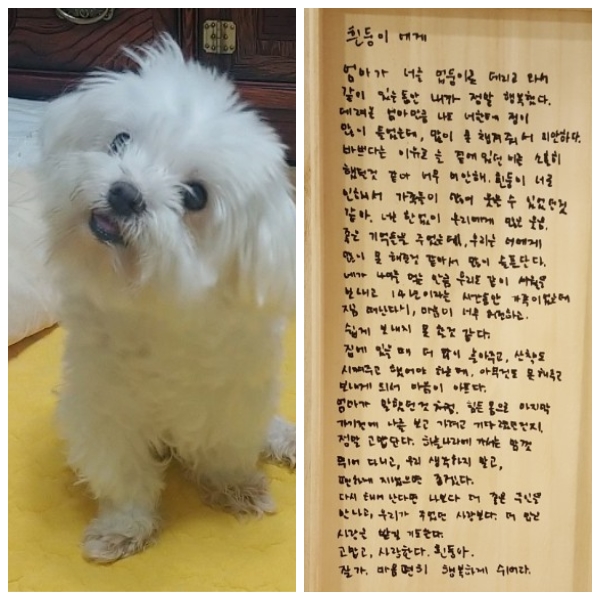 흰둥이 에게
엄마가 너를 업둥이로 데리고 와서
같이 있는동안 내가 정말 행복했다.
엄마만큼 나도 너한테 정이
많이 들었는데, 많이 못 챙겨줘서 미안하다.
바쁘다는 이유로 늘 곁에 있던 너를 소홀히
했던것 같아 너무 미안해. 흰둥이 너로
인해서 가족들이 많이 웃을 수 있었던것
같아. 너는 한없이 우리에게 많은 웃음,
좋은 기억들만 주었는데, 우리는 너에게
많이 못 해준것 같아서 많이 슬프단다.
네가 나이를 먹은 만큼 우리도 같이 세월을
보내고 14년이라는 시간동안 가족이었는데
막상 떠난다니, 마음이 너무 허전하고.
쉽게 보내지 못 할것 같다.
집에 있을 때 더 많이 놀아주고, 산책도
시켜주고 했어야 하는데, 아무것도 못해주고
보내게 되서 마음이 아프다.
엄마가 말했던것 처럼, 힘든 몸으로 마지막
가기전에 나를 보고 가려고 기다려줬던건지,
정말 고맙단다. 하늘나라에 가서는 맘껏
뛰어 다니고, 우리 생각하지 말고,
편하게 지냈으면 좋겠다.
다시 태어 난다면 나보다 더 좋은 주인을
만나고, 우리가 주었던 사랑보다. 더 많은
사랑을 받길 기도한다.
고맙고, 사랑한다. 흰둥아.
잘가. 마음 편히 행복하게 쉬어라.